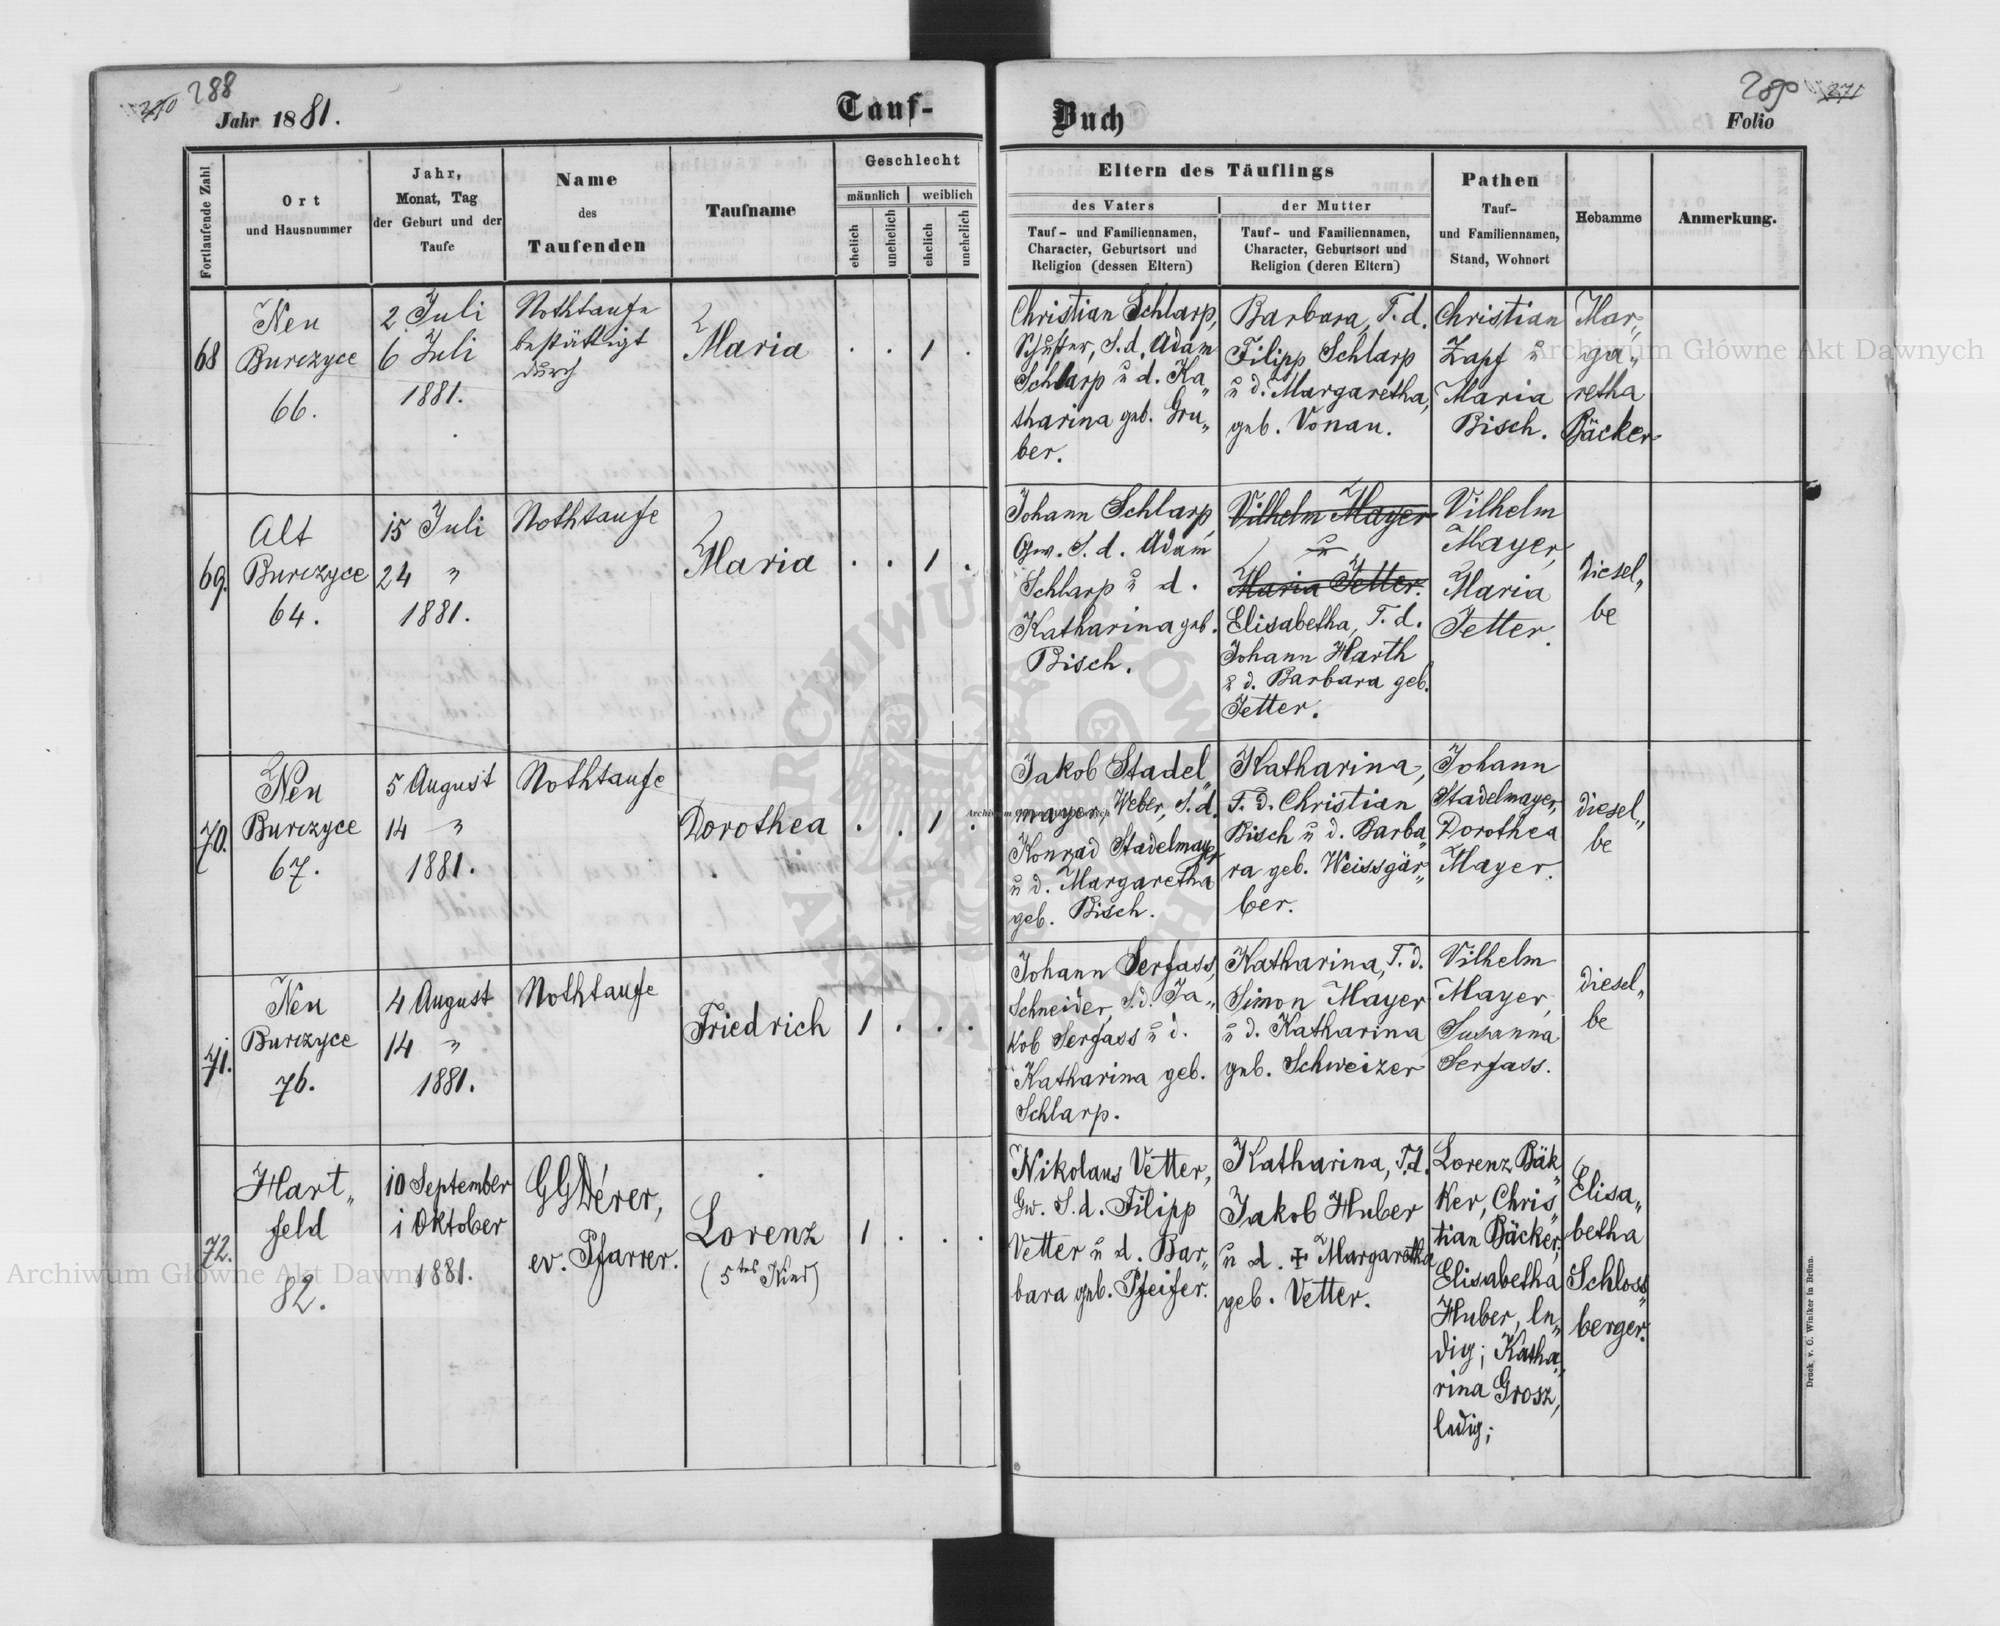 288
Jahr 1881.
Tauf-
Buch
289
271
Folio
Fortlaufende Zahl
Ort
und Hausnummer
Jahr,
Monat, Tag
der Geburt und der
Taufe
Name
des
Taufenden
Taufname
Geschlecht
männlich
weiblich
ehelich
unehelich
ehelich
unehelich
Eltern des Täuflings
des Vaters
Tauf- und Familiennamen,
Character, Geburtsort und
Religion (dessen Eltern)
der Mutter
Tauf- und Familiennamen,
Character, Geburtsort und
Religion (deren Eltern)
Pathen
Tauf-
und Familiennamen,
Stand, Wohnort
Hebamme
Anmerkung.
68
Neu
Burczyce
66.
2 Juli
6 Juli
1881.
Nothtaufe
bestättigt
durch
Maria
. . 1 .
Christian Schlarp,
Schuster, S.d. Adam
Schlarp u d. Ka„
tharina geb. Gru„
ber.
Barbara, T.d.
Filipp Schlarp
u d. Margaretha,
geb. Vonau.
Christian
Zapf u
Maria
Bisch.
Mar„
ga„
retha
Bäcker
69.
Alt
Burczyce
64.
15 Juli
24 "
1881.
Nothtaufe
Maria
. . 1 .
Johann Schlarp,
Gw. S. d. Adam
Schlarp u d.
Katharina geb.
Bisch.
Vilhelm Mayer
u
Maria Jetter.
Elisabetha, T. d.
Johann Harth
u d. Barbara geb.
Jetter.
Vilhelm
Mayer,
Maria
Jetter.
diesel„
be
70.
Neu
Burczyce
67.
5 August
14 "
1881.
Nothtaufe
Dorothea
. . 1 .
Jakob Stadel„
mayer, Weber, S.d.
Konrad Stadelmayer
u d. Margaretha
geb. Bisch.
Katharina,
T. d. Christian
Bisch u d. Barba„
ra geb. Weissgär„
ber.
Johann
Stadelmayer,
Dorothea
Mayer.
diesel„
be
71.
Neu
Burczyce
76.
4 August
14 "
1881.
Nothtaufe
Friedrich
1 . . .
Johann Serfass,
Schneider, S.d. Ja„
kob Serfass u d.
Katharina geb.
Schlarp.
Katharina, T. d.
Simon Mayer
u d. Katharina
geb. Schweizer
Vilhelm
Mayer,
Susanna
Serfass.
diesel„
be
72.
Hart„
feld
82.
10 September
1 Oktober
1881.
GGDérer,
ev. Pfarrer.
Lorenz
(5tes Kind)
1 . . .
Nikolaus Vetter,
Gw. S. d. Filipp
Vetter u d. Bar„
bara geb. Pfeifer.
Katharina, T.d.
Jakob Huber
u d. ✝ Margaretha
geb. Vetter.
Lorenz Bäk„
ker, Chris„
tian Bäcker,
Elisabetha
Huber, le„
dig; Katha„
rina Grosz,
ledig;
Elisa„
betha
Schloss„
berger.
Druck v. C. Winiker in Brünn.
Archiwum Główne Akt Dawnych
Archiwum Główne Akt Dawnych